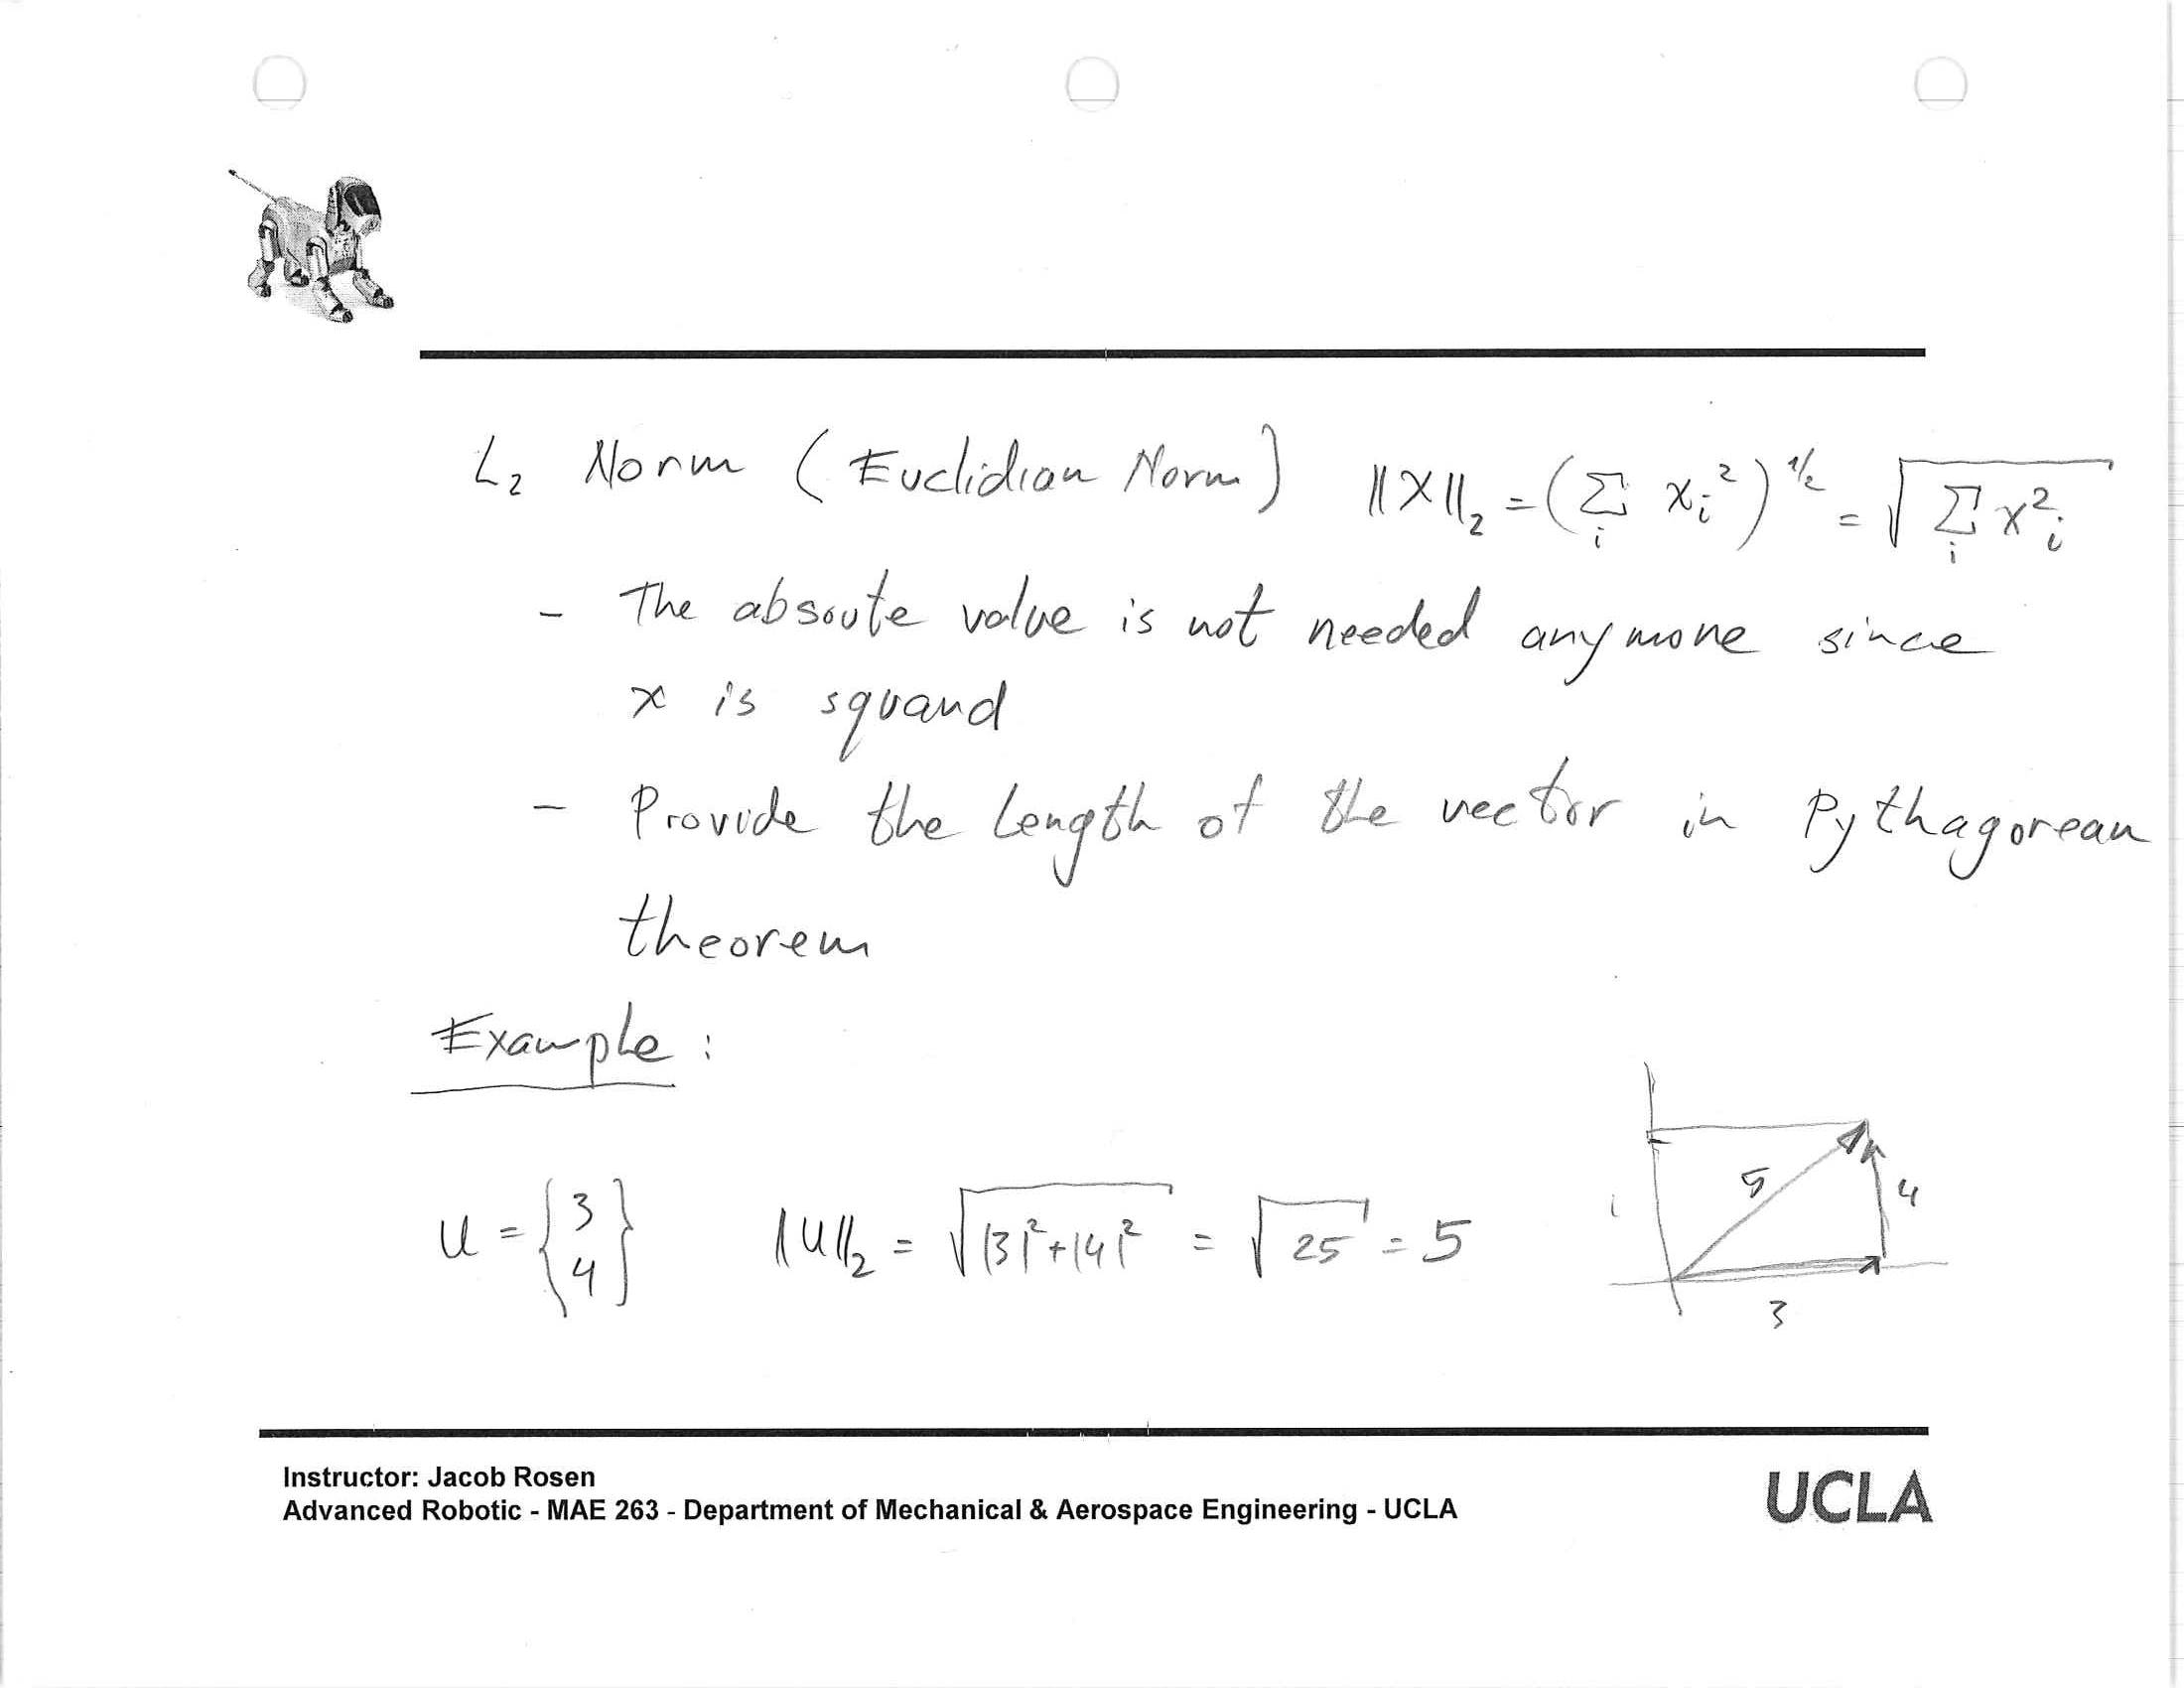 L₂ Norm (Euclidian Norm) ||X||₂ = (Σᵢ xᵢ²)^1/2 = √(Σᵢ x²ᵢ)
- The absoute value is not needed anymore since
x is squared
- Provide the length of the vector in Pythagorean
theorem
Example:
u = {3 4} ||u||₂ = √(|3|²+|4|²) = √25 = 5
5
4
3
Instructor: Jacob Rosen
Advanced Robotic - MAE 263 - Department of Mechanical & Aerospace Engineering - UCLA
UCLA